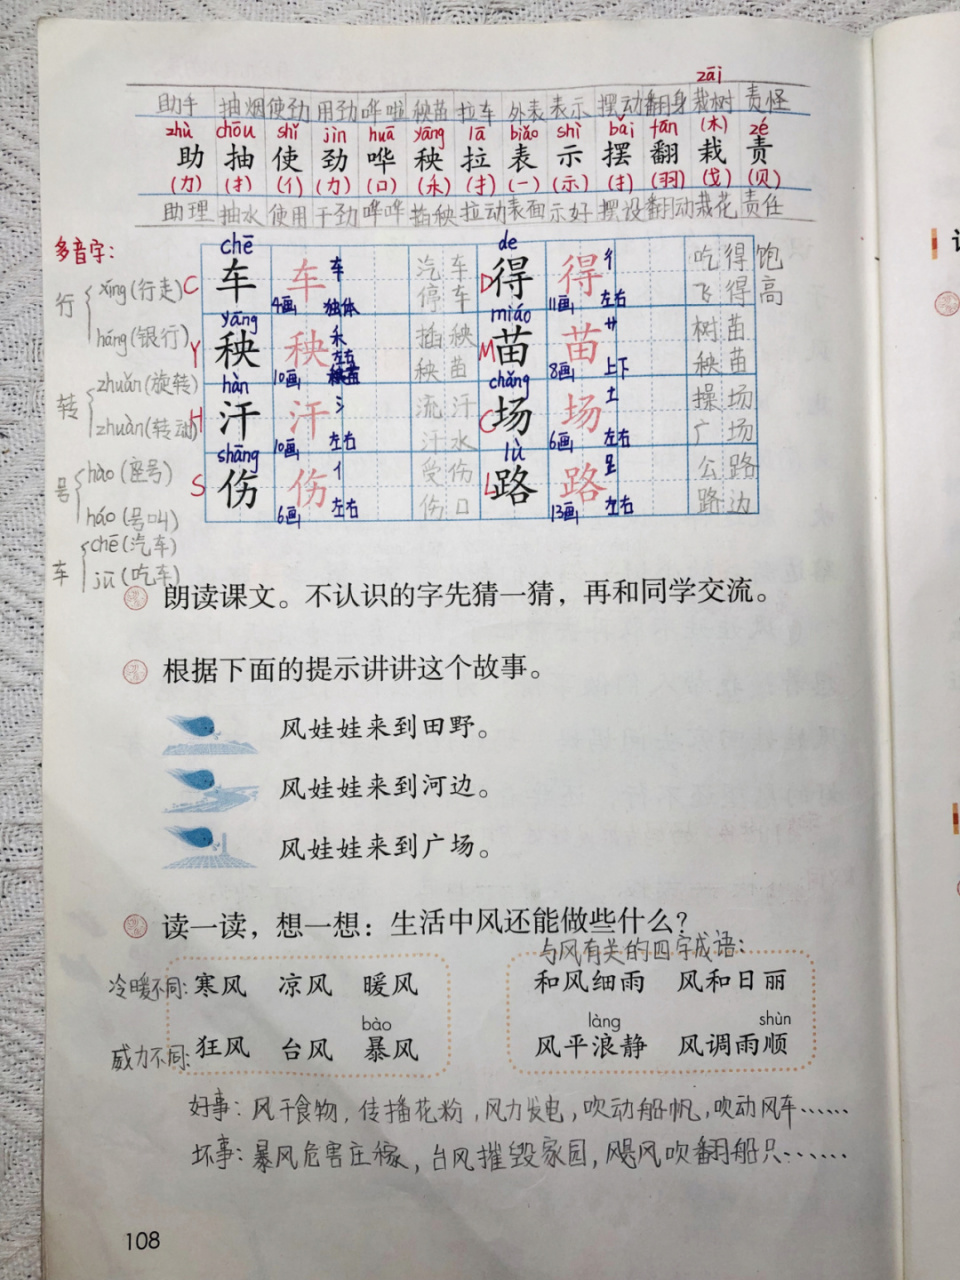 zāi
助手 抽烟 使劲 用劲 哗啦 秧苗 拉车 外表 表示 摆动 翻身 栽树 责怪
zhù chōu shǐ jìn huā yāng lā biǎo shì bǎi fān (木) zé
助 抽 使 劲 哗 秧 拉 表 示 摆 翻 栽 责
(力) (扌) (亻) (力) (口) (禾) (扌) (一) (示) (扌) (羽) (戈) (贝)
助理 抽水 使用 干劲 哗哗 插秧 拉动 表面 示好 摆设 翻动 栽花 责任
多音字:
行 xíng(行走) háng(银行)
转 zhuǎn(旋转) zhuàn(转动)
号 hào(座号) háo(号叫)
车 chē(汽车) jū(吃车)
chē de
C 车 车 车 4画 独体 汽车 停车 D 得 得 彳 11画 左右 吃得饱 飞得高
yāng miáo
Y 秧 秧 禾 10画 左右 插秧 秧苗 M 苗 苗 艹 8画 上下 树苗 秧苗
hàn chǎng
H 汗 汗 氵 10画 左右 流汗 汗水 C 场 场 土 6画 左右 操场 广场
shāng lù
S 伤 伤 亻 6画 左右 受伤 伤口 L 路 路 𧾷 13画 左右 公路 路边
朗读课文。不认识的字先猜一猜，再和同学交流。
根据下面的提示讲讲这个故事。
风娃娃来到田野。
风娃娃来到河边。
风娃娃来到广场。
读一读，想一想：生活中风还能做些什么？
与风有关的四字成语:
冷暖不同: 寒风 凉风 暖风 和风细雨 风和日丽
bào làng shùn
威力不同: 狂风 台风 暴风 风平浪静 风调雨顺
好事: 风干食物, 传播花粉, 风力发电, 吹动船帆, 吹动风车……
坏事: 暴风危害庄稼, 台风摧毁家园, 飓风吹翻船只……
108